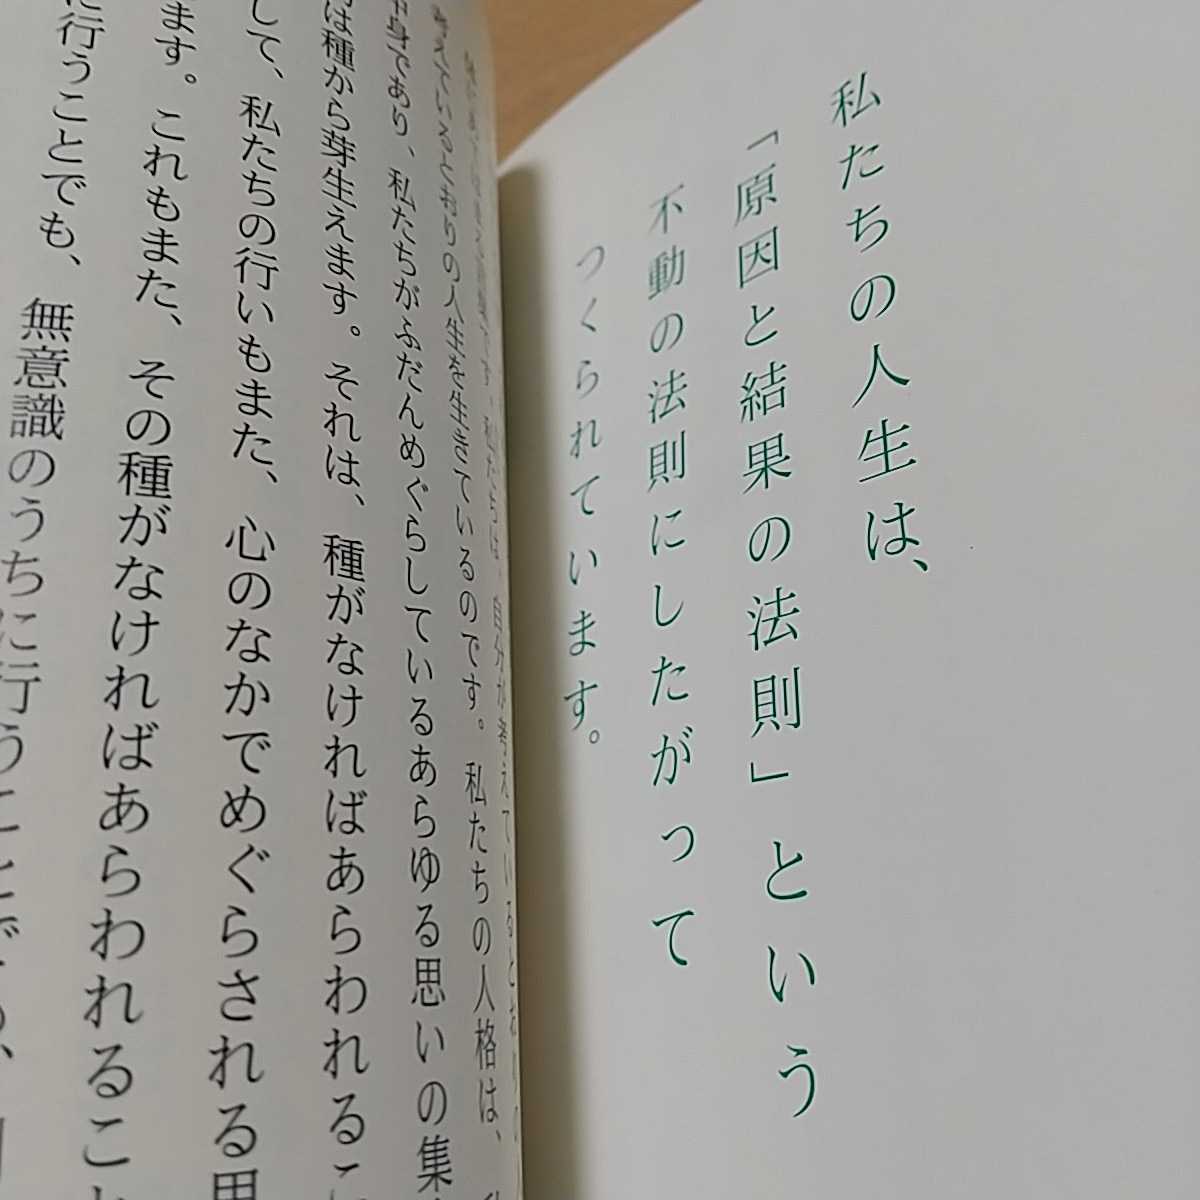 私たちの人生は、
「原因と結果の法則」という
不動の法則にしたがって
つくられています。
自分が考えているとおりの
考えているとおりの人生を生きているのです。私たちの人格は、
中身であり、私たちがふだんめぐらしているあらゆる思いの集
は種から芽生えます。それは、種がなければあらわれるこ
して、私たちの行いもまた、心のなかでめぐらされる思
ます。これもまた、その種がなければあらわれること
に行うことでも、無意識のうちに行うことでも、